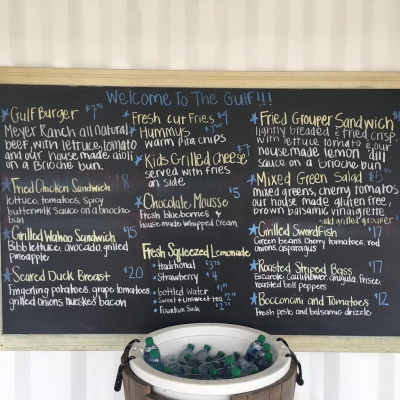 Welcome To The Gulf!!!
Gulf Burger $7.95
Meyer Ranch all natural
beef, with lettuce, tomato
and our housemade aioli
on a Brioche bun.
Fried Chicken Sandwich $8
lettuce, tomatoes, spicy
buttermilk Sauce on a brioche
bun
Grilled Wahoo Sandwich $15
Bibb lettuce, avocado, grilled
pineapple
Seared Duck Breast $20
Fingerling potatoes, grape tomatoes,
grilled onions, Nueskes bacon
Fresh cut Fries $4
Hummus
warm pita chips
Kids Grilled cheese $7
served with fries
on side
Chocolate Mousse $5
Fresh blueberries &
house made Whipped Cream
Fresh Squeezed Lemonade
traditional
Strawberry $4
bottled Water
Sweet & unsweet tea
Fountain Soda
Fried Grouper Sandwich
lightly breaded & fried crisp,
with lettuce tomato & our
housemade lemon dill
sauce on a brioche bun
Mixed Green Salad
mixed greens, cherry tomatoes
our house made gluten free,
brown balsamic vinaigrette
add grilled grouper
Grilled Swordfish $17
Green beans, Cherry tomatoes, red
onions, asparagus
Roasted Striped Bass $17
Escarole, cauliflower, arugula, frisee,
roasted bell peppers
Bocconcini and Tomatoes $12
Fresh pesto and balsamic drizzle